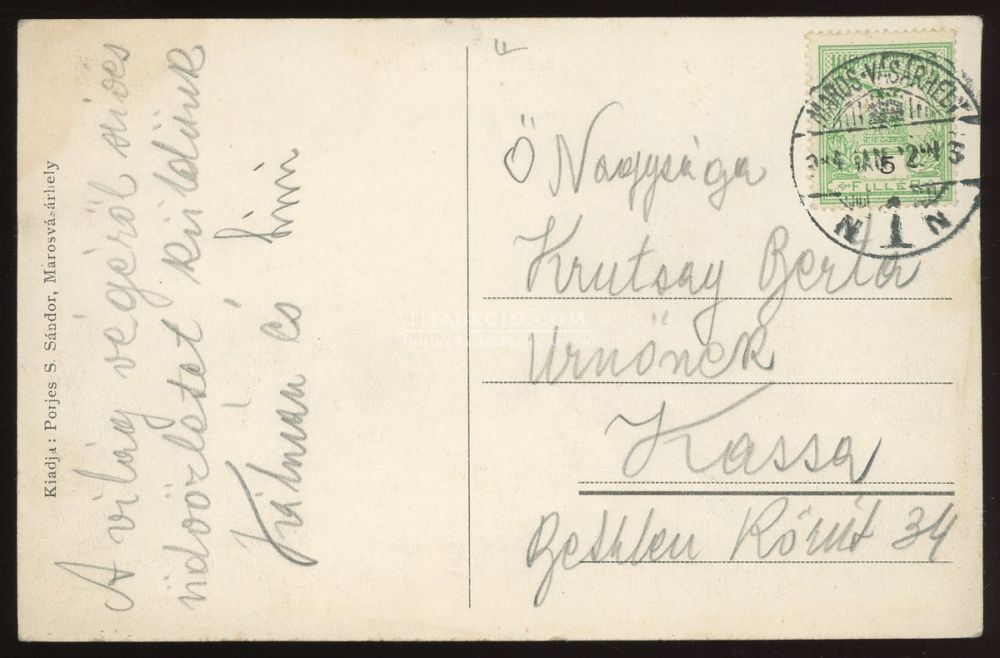 Kiadja: Porjes S. Sándor, Marosvásárhely
A világ végéről szíves
üdvözletet küldünk
Kálmán és
Ő Nagysága
Krutsay Berta
Urnőnek
Kassa
Bethlen Körút 34
MAROS-VÁSÁRHELY
5
FILLÉR
UTAUKCIO.COM